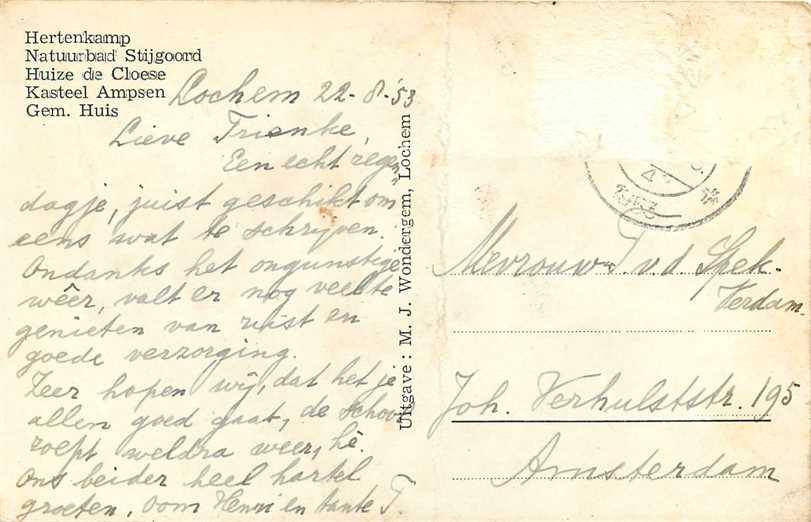 Hertenkamp
Natuurbad Stijgoord
Huize de Cloese
Kasteel Ampsen
Gem. Huis
Lochem 22-8-'53
Lieve Trienke,
Een echt regen
dagje, juist geschikt om
eens wat te schrijven.
Ondanks het ongunstige
wêer, valt er nog veel te
genieten van rust en
goede verzorging.
Zeer hopen wij, dat het je
allen goed gaat, de school
roept weldra weer, hè.
Ons beider heel hartel
groeten, oom Henri en tante T.
Uitgave: M. J. Wondergem, Lochem
1953
Mevrouw T. v. d. Spek-
Verdam.
Joh. Verhulststr. 195
Amsterdam